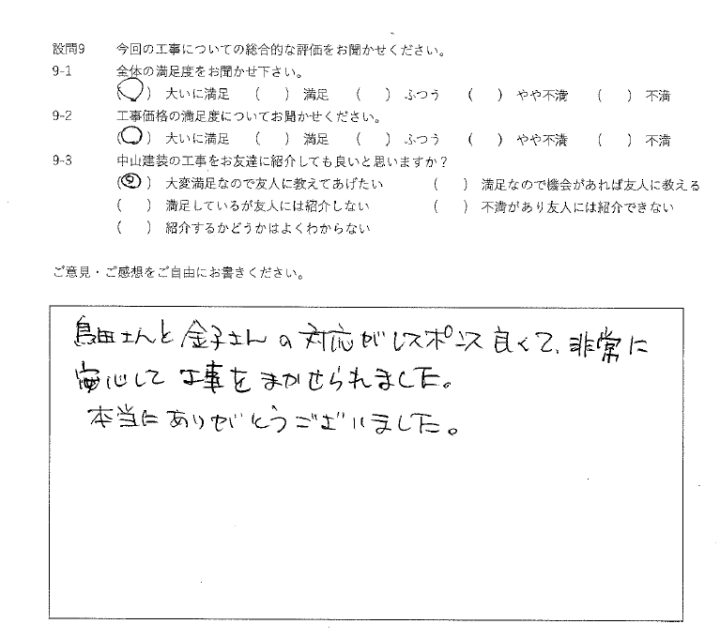 設問9 今回の工事についての総合的な評価をお聞かせください。
9-1 全体の満足度をお聞かせ下さい。
(○) 大いに満足 ( ) 満足 ( ) ふつう ( ) やや不満 ( ) 不満
9-2 工事価格の満足度についてお聞かせください。
(○) 大いに満足 ( ) 満足 ( ) ふつう ( ) やや不満 ( ) 不満
9-3 中山建装の工事をお友達に紹介しても良いと思いますか？
(◎) 大変満足なので友人に教えてあげたい ( ) 満足なので機会があれば友人に教える
( ) 満足しているが友人には紹介しない ( ) 不満があり友人には紹介できない
( ) 紹介するかどうかはよくわからない
ご意見・ご感想をご自由にお書きください。
島田さんと金子さんの対応がレスポンス良くて、非常に
安心して工事をまかせられました。
本当にありがとうございました。